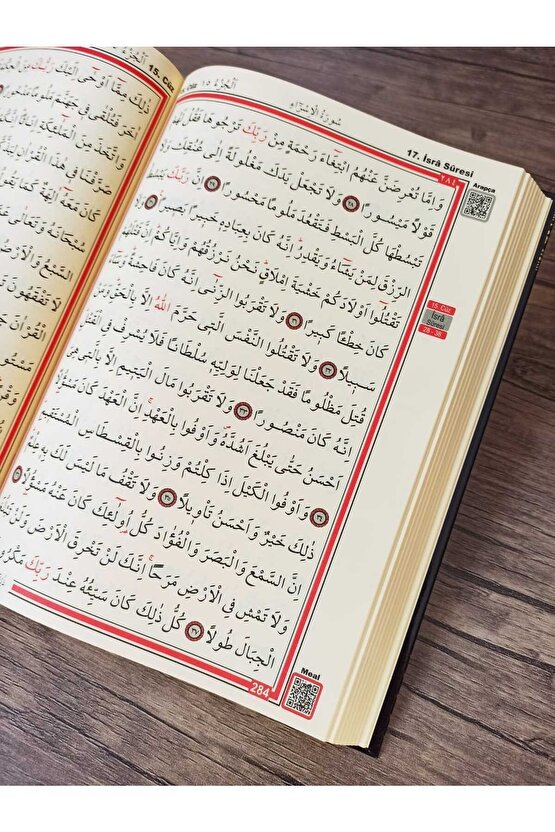 15. Cüz
اَلْجُزْءُ
ذٰلِكَ مِمَّٓا اَوْحٰٓى اِلَيْكَ رَبُّكَ مِنَ
اٰخَرَ فَتُلْقٰى فِي جَهَنَّمَ مَلُومًا
وَاتَّخَذَ مِنَ الْمَلٰٓئِكَةِ
صَرَّفْنَا فِي هٰذَا الْقُرْاٰنِ
كَانَ مَعَهُٓ اٰلِهَةٌ كَمَا
سُبْحَانَهُ وَتَعَالٰى عَمَّا
السَّبْعُ وَالْاَرْضُ
لَا تَفْقَهُونَ
الْقُرْاٰنَ
مَسْتُورًا
Cüz ١٥ اَلْجُزْءُ
سُورَةُ الْاِسْرَاءِ
17. İsrâ Sûresi
وَاِمَّا تُعْرِضَنَّ عَنْهُمُ ابْتِغَٓاءَ رَحْمَةٍ مِنْ رَبِّكَ تَرْجُوهَا فَقُلْ لَهُمْ
قَوْلًا مَيْسُورًا ﴿٢٨﴾ وَلَا تَجْعَلْ يَدَكَ مَغْلُولَةً اِلٰى عُنُقِكَ وَلَا
تَبْسُطْهَا كُلَّ الْبَسْطِ فَتَقْعُدَ مَلُومًا مَحْسُورًا ﴿٢٩﴾ اِنَّ رَبَّكَ يَبْسُطُ
الرِّزْقَ لِمَنْ يَشَٓاءُ وَيَقْدِرُ اِنَّهُ كَانَ بِعِبَادِهِ خَبِيرًا بَصِيرًا ﴿٣٠﴾ وَلَا
تَقْتُلُٓوا اَوْلَادَكُمْ خَشْيَةَ اِمْلَاقٍ نَحْنُ نَرْزُقُهُمْ وَاِيَّاكُمْ اِنَّ قَتْلَهُمْ
كَانَ خِطْـًٔا كَبِيرًا ﴿٣١﴾ وَلَا تَقْرَبُوا الزِّنٰٓى اِنَّهُ كَانَ فَاحِشَةً وَسَٓاءَ
سَبِيلًا ﴿٣٢﴾ وَلَا تَقْتُلُوا النَّفْسَ الَّتِي حَرَّمَ اللّٰهُ اِلَّا بِالْحَقِّ وَمَنْ
قُتِلَ مَظْلُومًا فَقَدْ جَعَلْنَا لِوَلِيِّهِ سُلْطَانًا فَلَا يُسْرِفْ فِي الْقَتْلِ
اِنَّهُ كَانَ مَنْصُورًا ﴿٣٣﴾ وَلَا تَقْرَبُوا مَالَ الْيَتِيمِ اِلَّا بِالَّتِي هِيَ
اَحْسَنُ حَتّٰى يَبْلُغَ اَشُدَّهُ وَاَوْفُوا بِالْعَهْدِ اِنَّ الْعَهْدَ كَانَ مَسْؤُلًا
﴿٣٤﴾ وَاَوْفُوا الْكَيْلَ اِذَا كِلْتُمْ وَزِنُوا بِالْقِسْطَاسِ الْمُسْتَقِيمِ
ذٰلِكَ خَيْرٌ وَاَحْسَنُ تَأْوِيلًا ﴿٣٥﴾ وَلَا تَقْفُ مَا لَيْسَ لَكَ بِهِ عِلْمٌ
اِنَّ السَّمْعَ وَالْبَصَرَ وَالْفُؤَادَ كُلُّ اُو۬لٰٓئِكَ كَانَ عَنْهُ مَسْؤُلًا ﴿٣٦﴾
وَلَا تَمْشِ فِي الْاَرْضِ مَرَحًا اِنَّكَ لَنْ تَخْرِقَ الْاَرْضَ وَلَنْ تَبْلُغَ
الْجِبَالَ طُولًا ﴿٣٧﴾ كُلُّ ذٰلِكَ كَانَ سَيِّئُهُ عِنْدَ رَبِّكَ مَكْرُوهًا
Arapça
15. Cüz
İsrâ
Sûresi
28 - 38
284
Meal